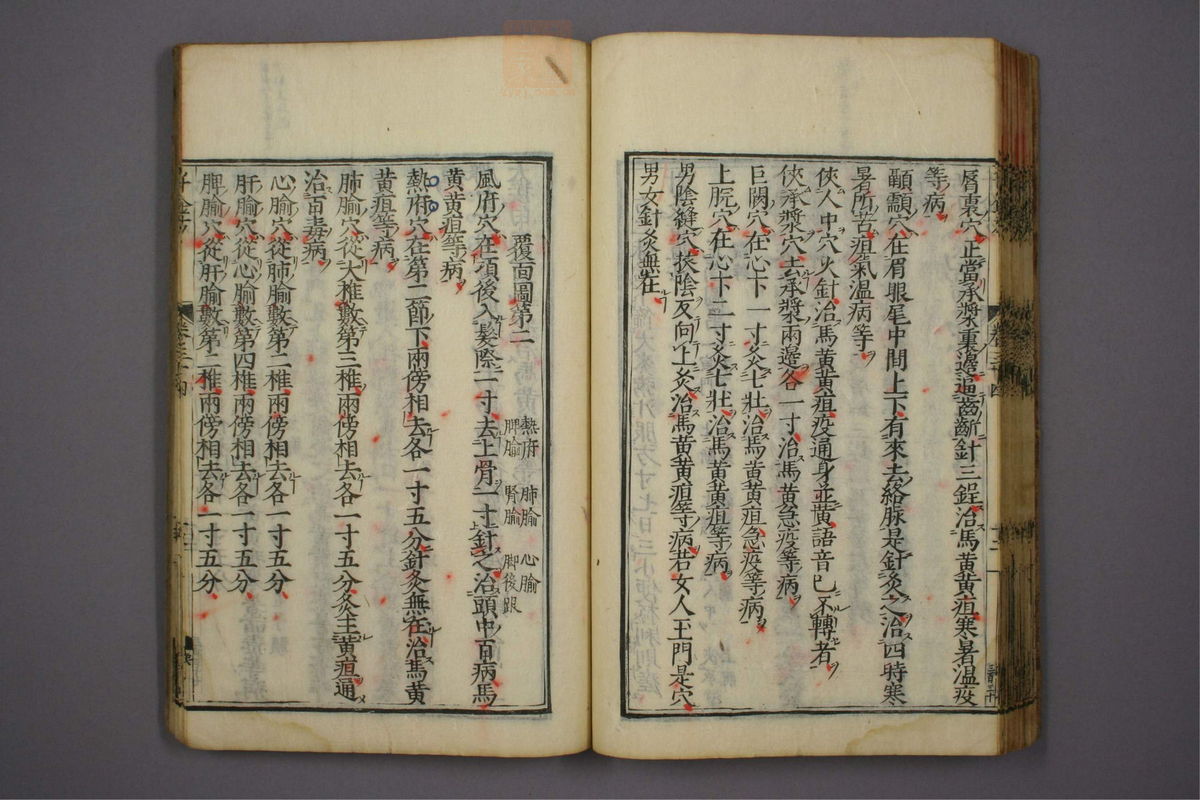 脣裏穴正當承漿裏邊逼齒齗針三鋥治馬黃黃疸寒暑溫疫
等病
顳顬穴在眉眼尾中間上下有來去絡脉是針灸之治四時寒
暑所苦疸氣溫病等
俠人中穴火針治馬黃黃疸疫通身並黃語音已不轉者
俠承漿穴去承漿兩邊各一寸治馬黃急疫等病
巨闕穴在心下一寸灸七壯治馬黃黃疸急疫等病
上脘穴在心下二寸灸七壯治馬黃黃疸等病
男陰縫穴拔陰反向上灸治馬黃黃疸等病若女人玉門是穴
男女針灸無在
覆面圖第二
熱府 肺腧 心腧
脾腧 腎腧 脚後跟
風府穴在項後入髮際一寸去上骨一寸針之治頭中百病馬
黃黃疸等病
熱府穴在第二節下兩傍相去各一寸五分針灸無在治馬黃
黃疸等病
肺腧穴從大椎數第三椎兩傍相去各一寸五分灸主黃疸通
治百毒病
心腧穴從肺腧數第二椎兩傍相去各一寸五分
肝腧穴從心腧數第四椎兩傍相去各一寸五分
脾腧穴從肝腧數第二椎兩傍相去各一寸五分